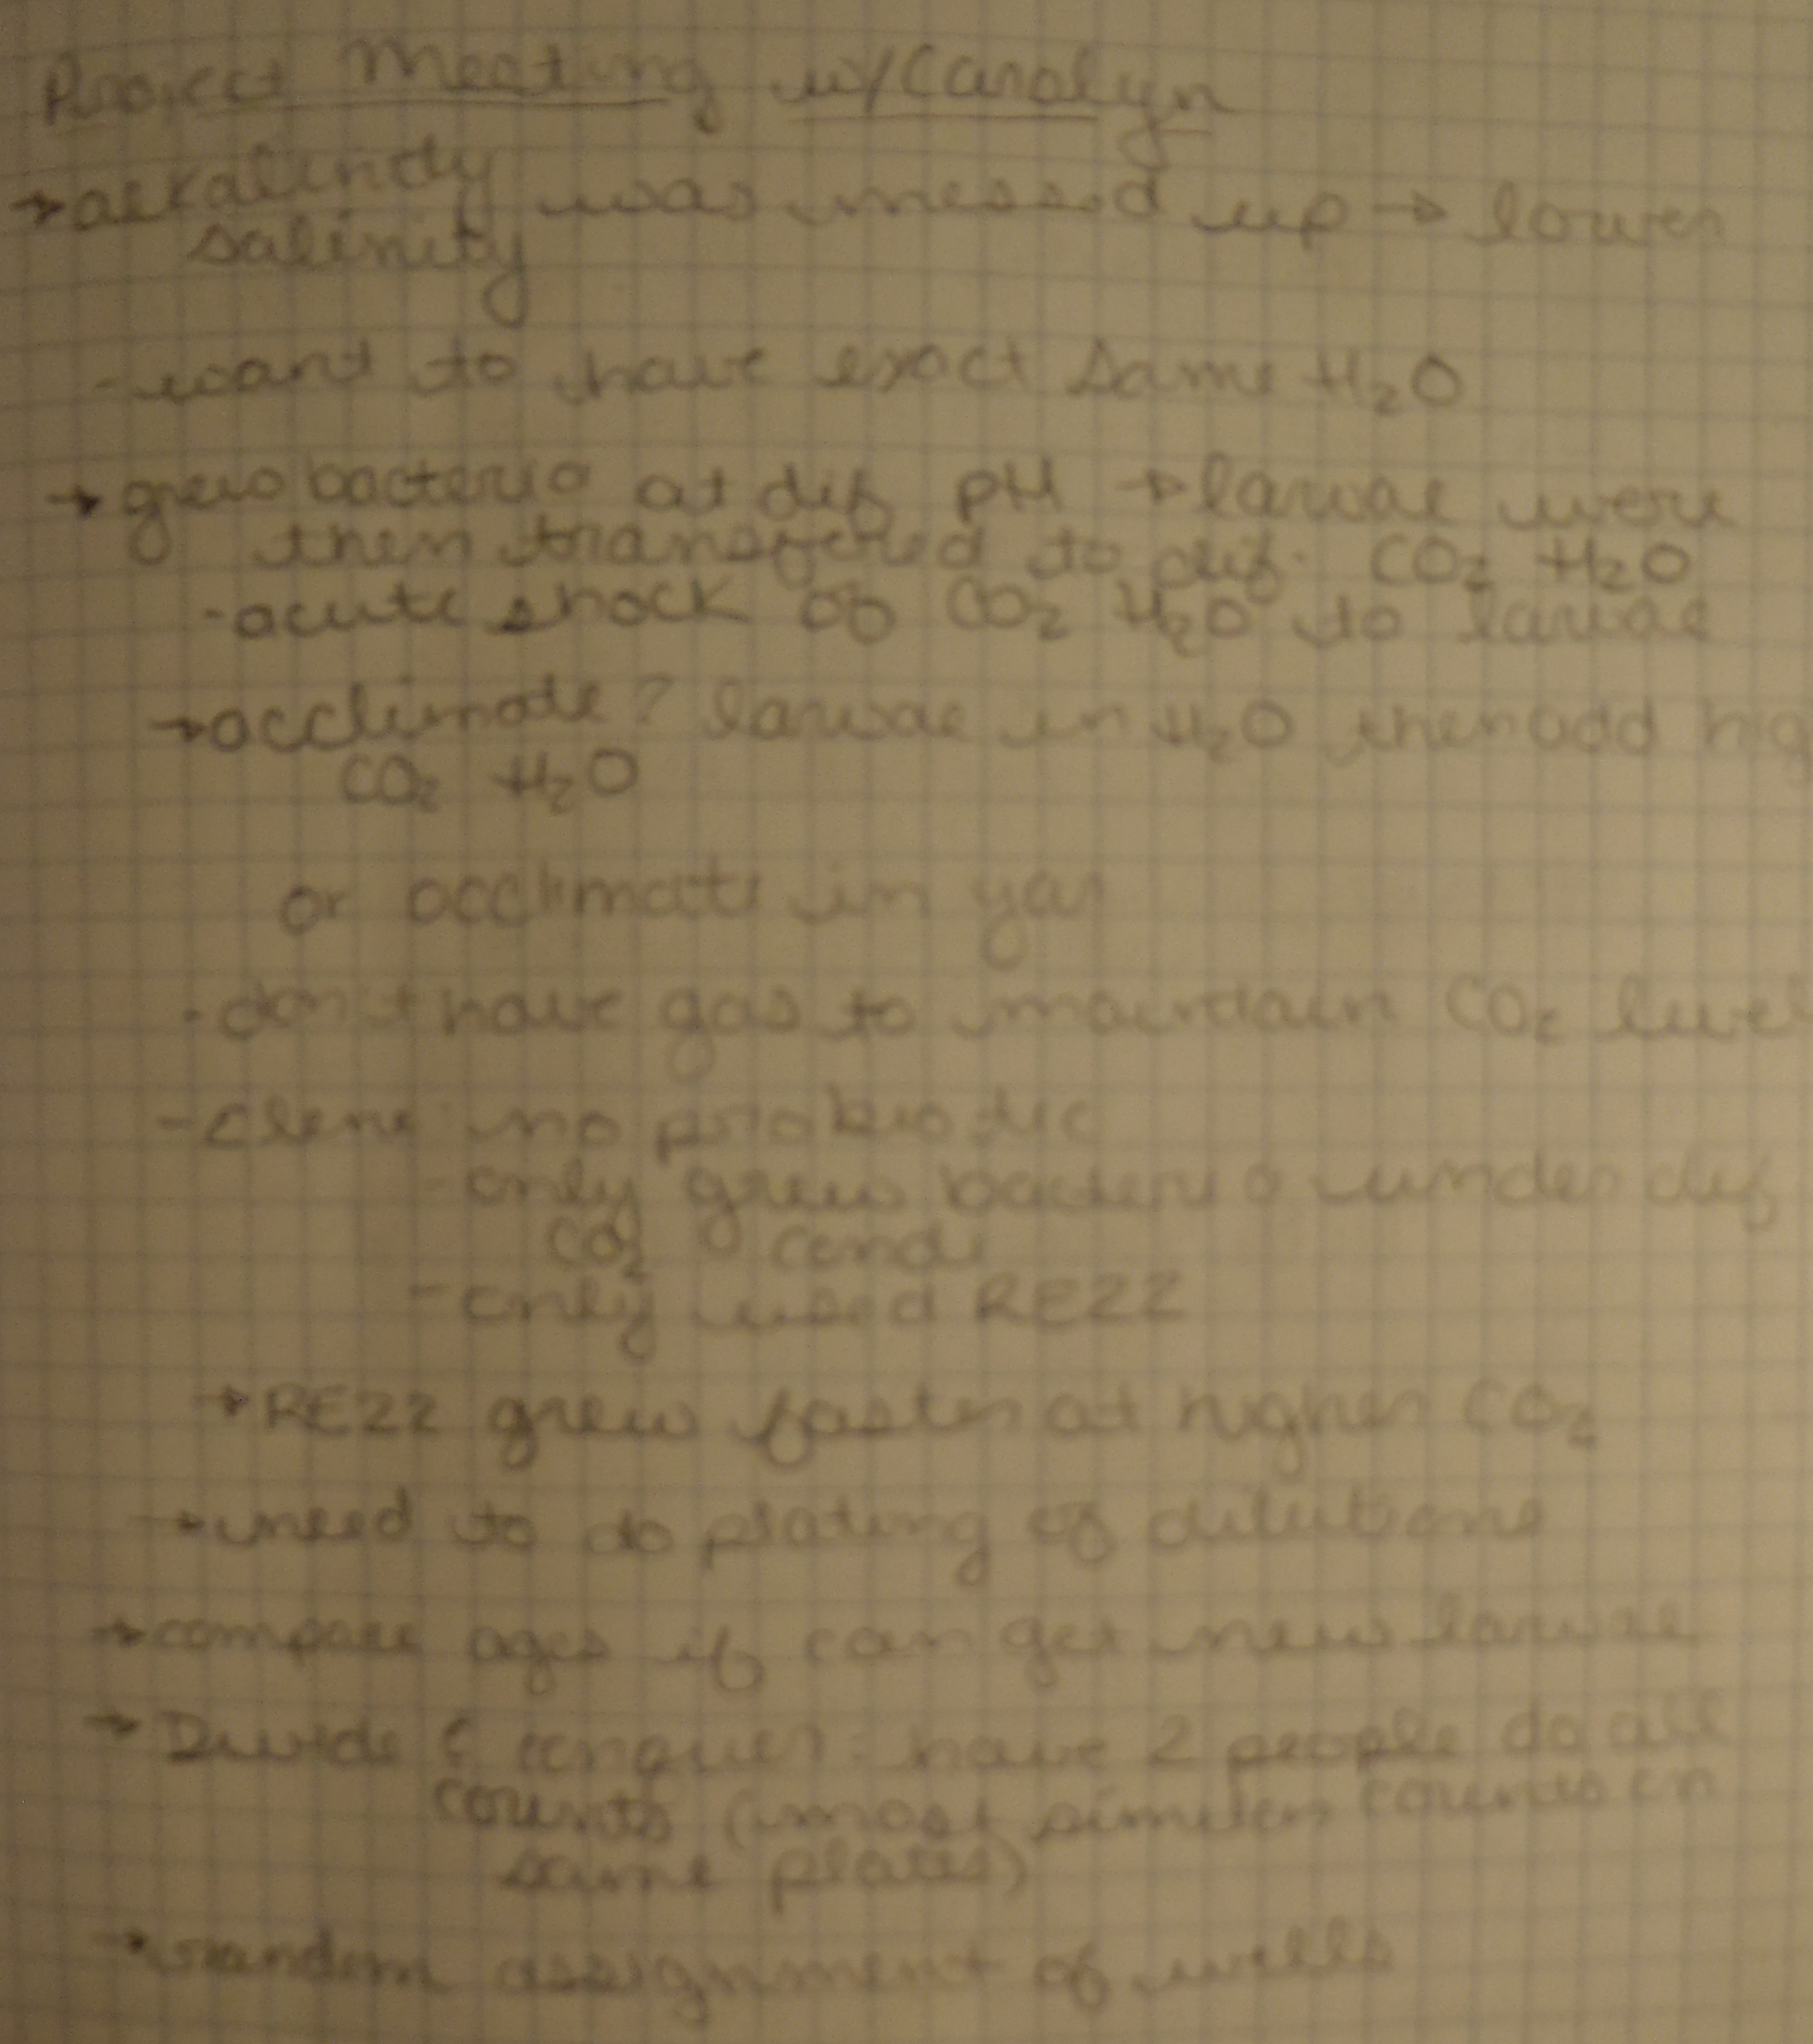 Project Meeting w/Carolyn
→ alkalinity was messed up → lower
salinity
- want to have exact same H₂O
→ grew bacteria at dif pH → larvae were
then transfered to dif. CO₂ H₂O
- acute shock of CO₂ H₂O to larvae
→ acclimate? larvae in H₂O then add hig
CO₂ H₂O
or acclimate in
- don't have gas to maintain CO₂ level
- no probiotic
- only grew bacteria under dif
CO₂ cond.
- only used RE22
→ RE22 grew faster at higher CO₂
→ need to do plating of dilutions
→ compare ages if can get new larvae
→ Divide & conquer: have 2 people do all
counts (most similar counts on
same plates)
→ random assignment of wells